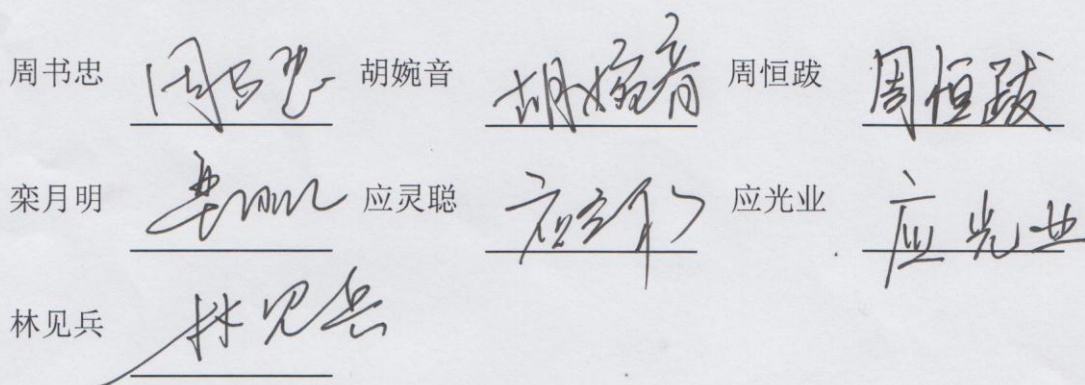 周书忠 周书忠 胡婉音 胡婉音 周恒跋 周恒跋
栾月明 应灵聪 应光业 应光业
林见兵 林见兵